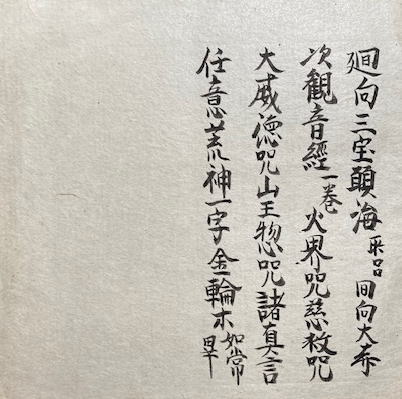 廻向三宝願海 回向大
次観音經一巻火界咒慈救咒
大威徳咒山王惣咒諸真言
任意荒神一字金輪ホ如常